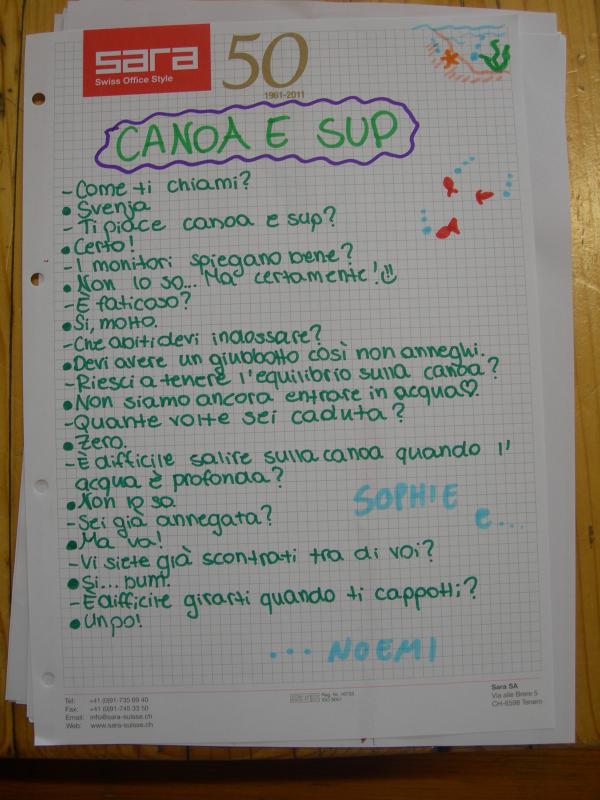 sara
Swiss Office Style
50
1961-2011
CANOA E SUP
- Come ti chiami?
• Svenja
- Ti piace canoa e sup?
• Certo!
- I monitori spiegano bene?
• Non lo so... Ma certamente!
- È faticoso?
• Si, molto.
- Che abiti devi indossare?
• Devi avere un giubbotto così non anneghi.
- Riesci a tenere l'equilibrio sulla canoa?
• Non siamo ancora entrare in acqua♡.
- Quante volte sei caduta?
• Zero.
- È difficile salire sulla canoa quando l'
acqua è profonda?
• Non lo so.
- Sei già annegata?
• Ma va!
- Vi siete già scontrati tra di voi?
• Si... bum.
- È difficile girarti quando ti cappotti?
• Un po!
SOPHIE
e...
... NOEMI
Tel: +41 (0)91-735 69 40
Fax: +41 (0)91-745 33 50
Email: info@sara-suisse.ch
Web: www.sara-suisse.ch
ISO 9001
Sara SA
Via alle Brere 5
CH-6598 Tenero